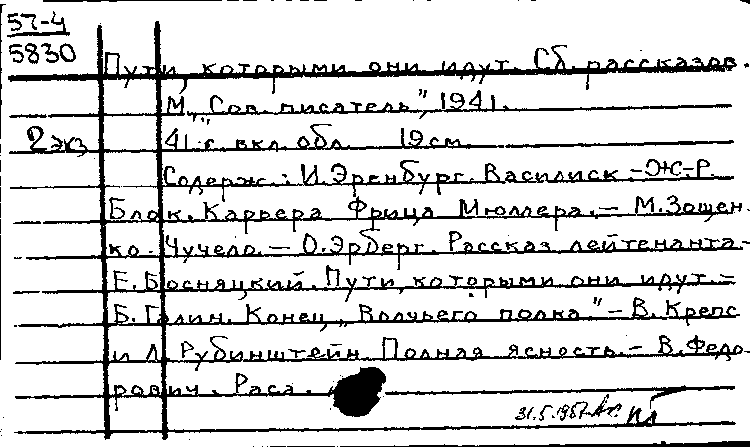 57-4
5830
Пути, которыми они идут. Сб. рассказов.
М., "Сов. писатель", 1941.
2 экз
41 с. вкл. обл. 19 см.
Содерж.: И. Эренбург. Василиск. - Ж-Р.
Блок. Карьера Фрица Мюллера. - М. Зощен-
ко. Чучело. - О. Эрберг. Рассказ лейтенанта. -
Е. Босняцкий. Пути, которыми они идут. -
Б. Галин. Конец "Волчьего полка". - В. Крепс
и Л. Рубинштейн. Полная ясность. - В. Федо-
рович. Раса.
31.5.1957.